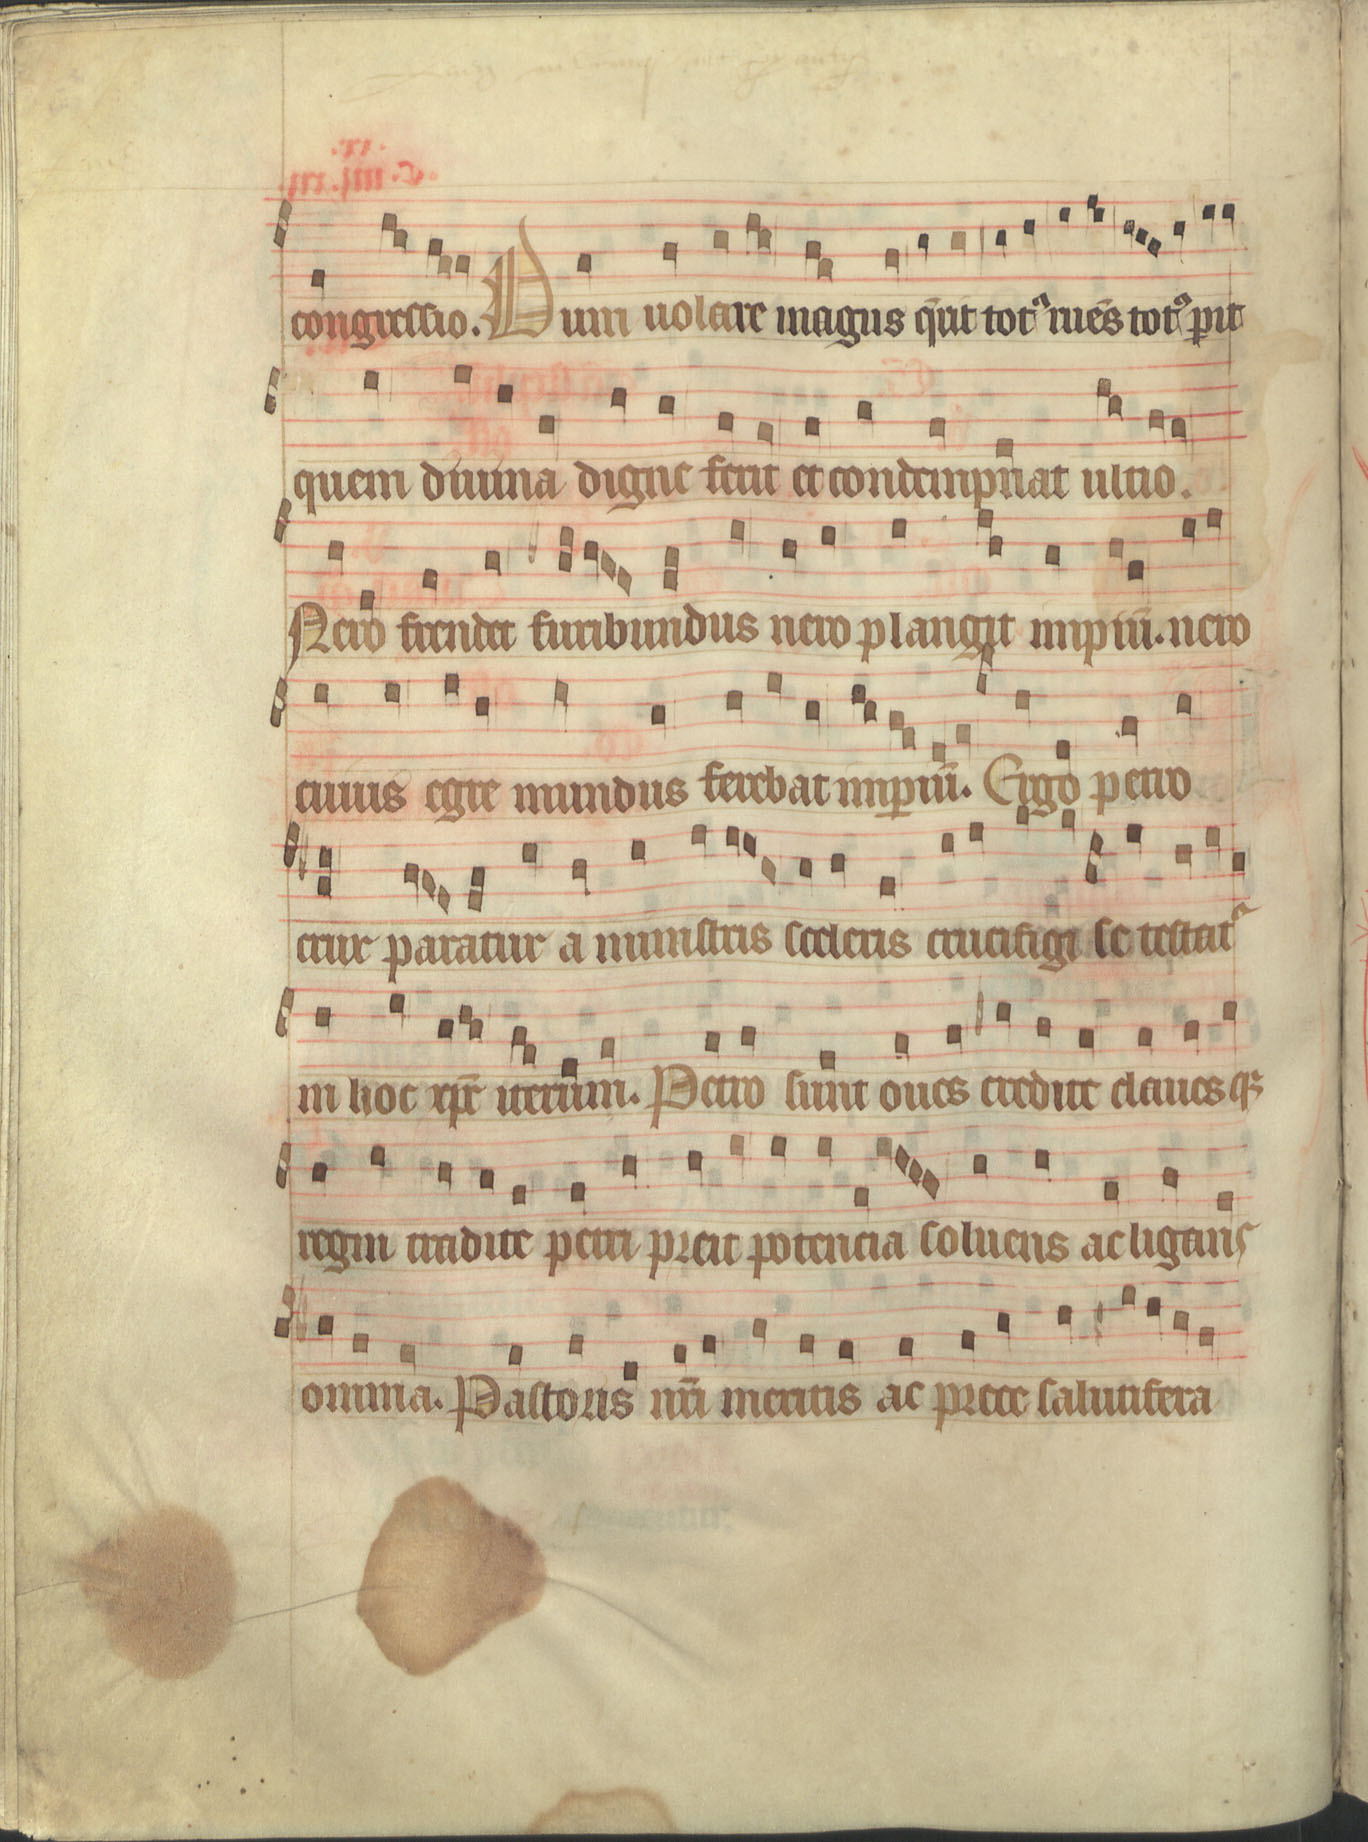 congressio. Dum uolare magus q̄rit totꝰ ruēs totꝰ ꝑit
quem diuina digne ferit et condempnat ultio.
Nero frendet furibundus nero plangit impiū. nero
cuius egre mundus ferebat imꝑiū. Ergo petro
crux paratur a ministris sceleris crucifigi se testatꝰ
in hoc xp̄c iterum. Petro sunt oues credite claues qꝫ
regni tradite petri preit potencia soluens ac ligans
omnia. Pastoris nr̄i meritis ac prece salutifera